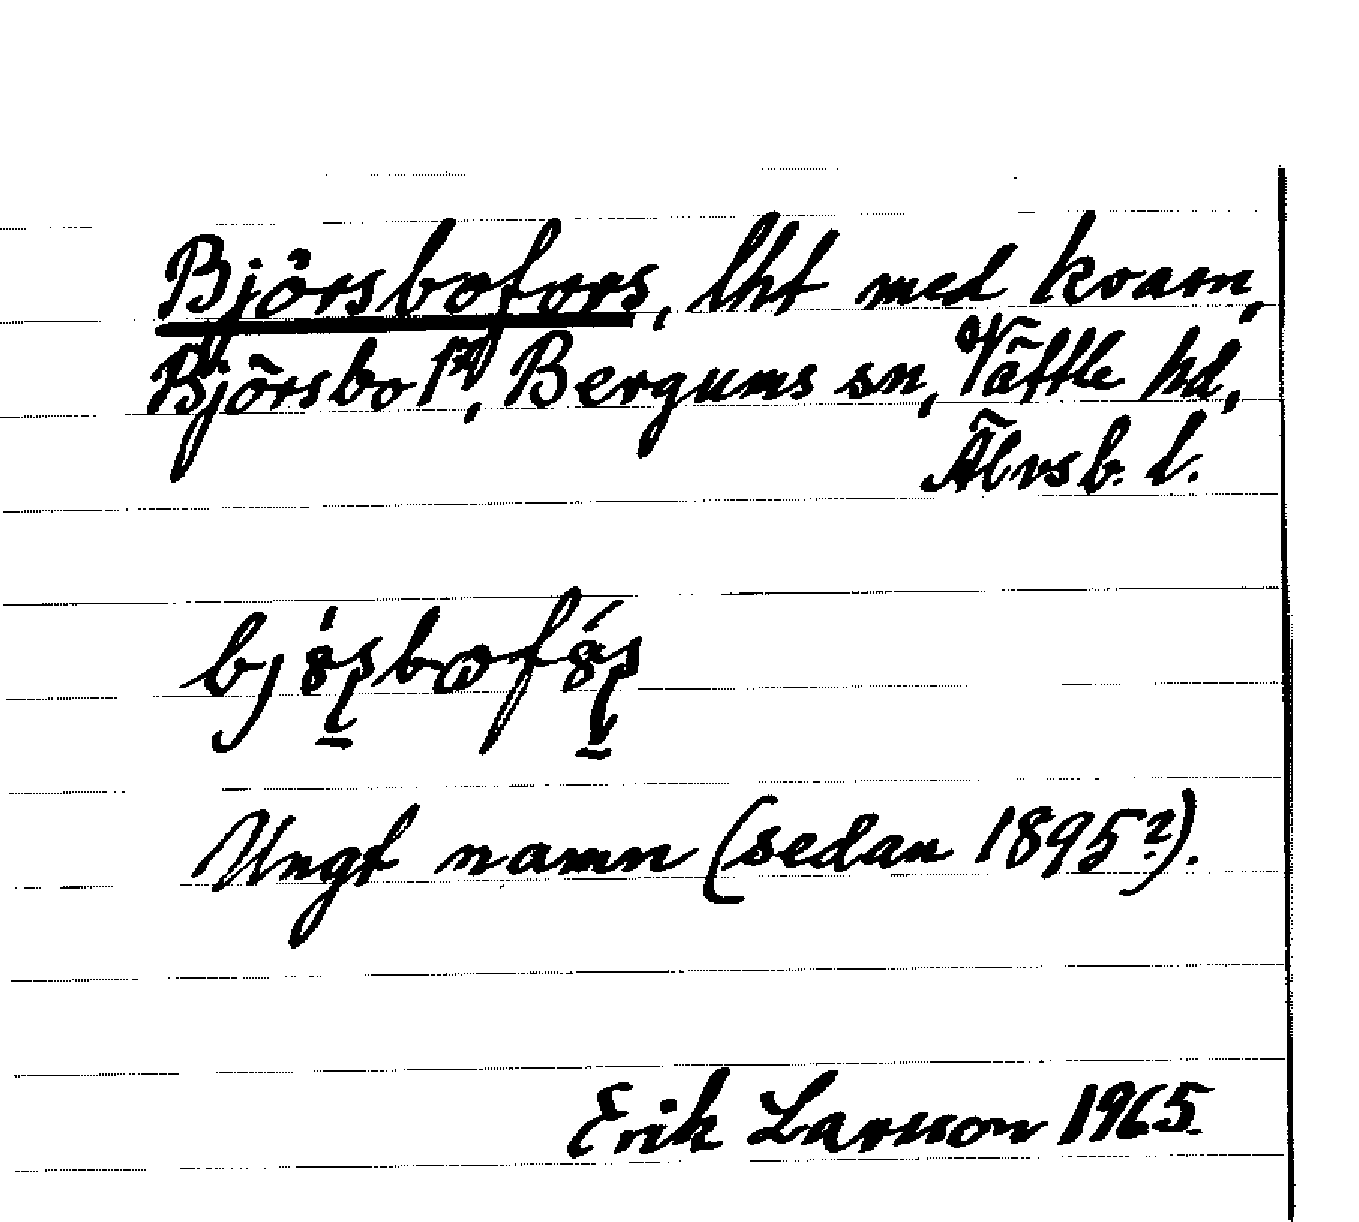 Björsbofors, lht med kvarn,
Björsbo 1/4, Bergums sn, Vättle hd,
Älvsb. l.
Ungt namn (sedan 1895?).
Erik Larsson 1965.